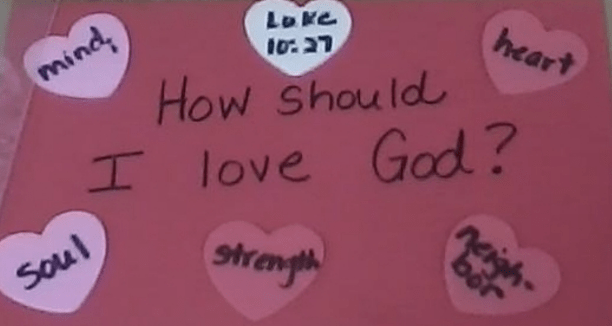 mind,
Luke
10:27
heart
How should
I love God?
soul
strength
neigh-
bor